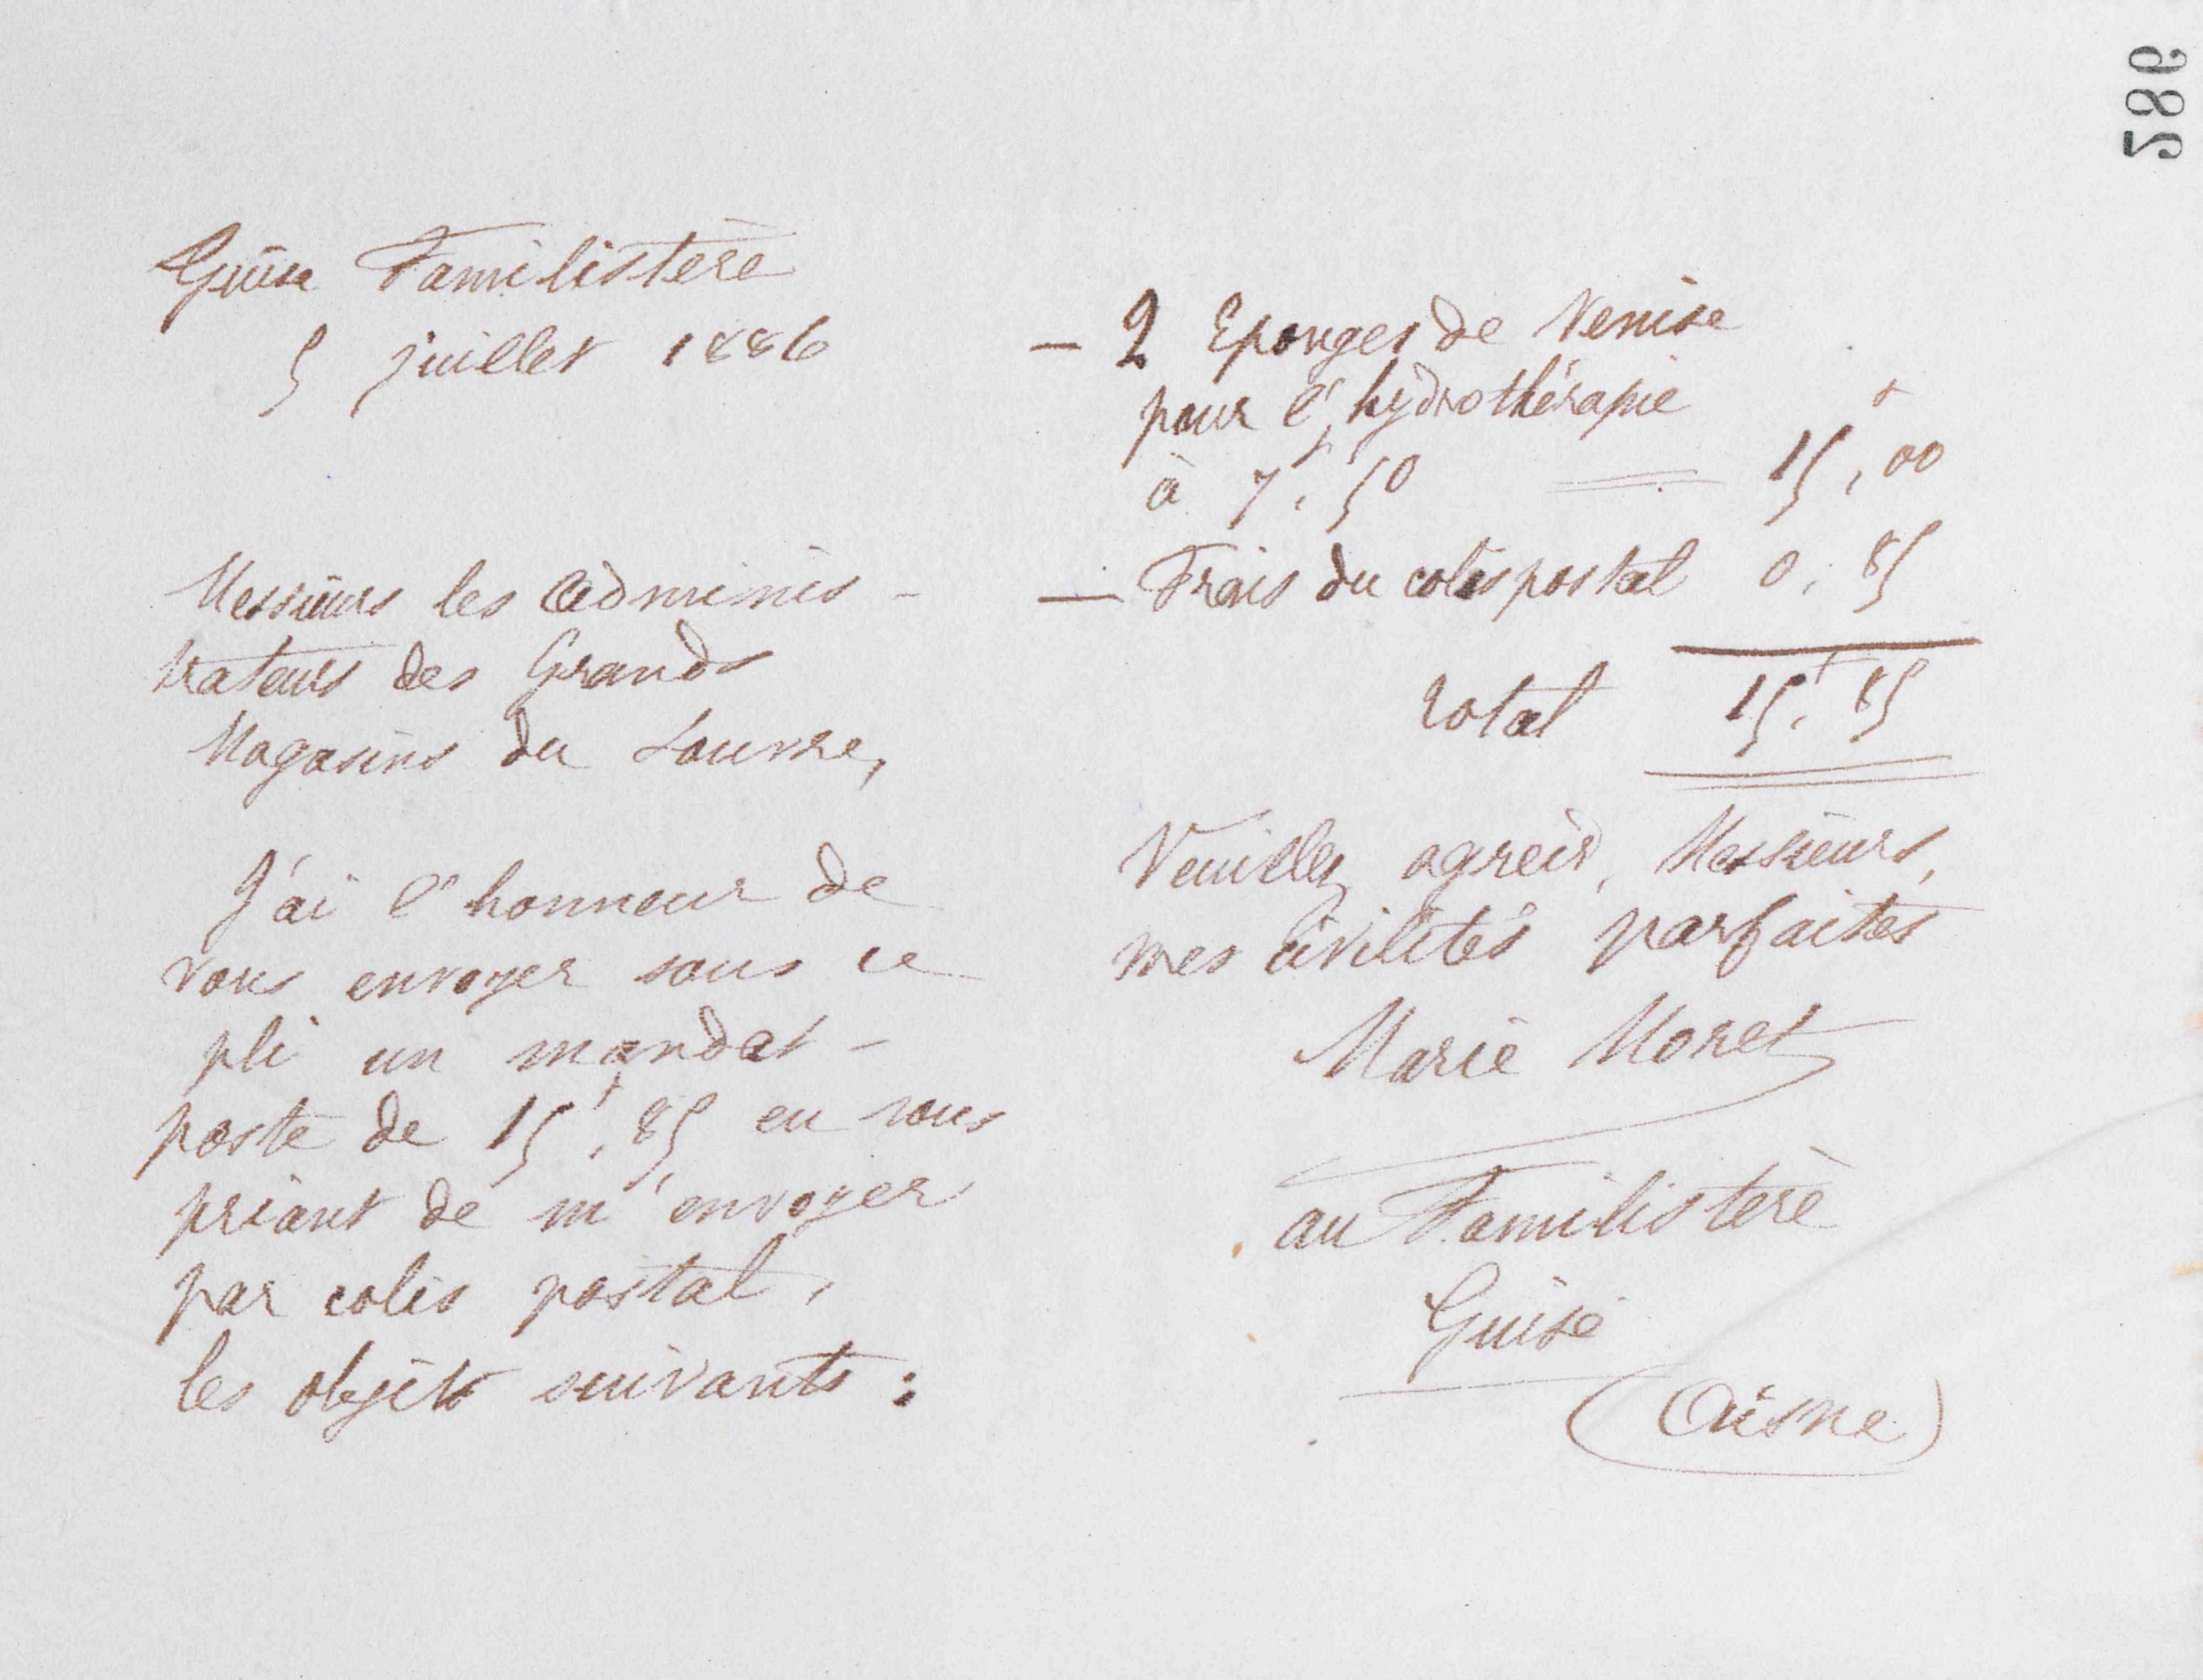 Guise Familistère
5 juillet 1886
Messieurs les adminis-
trateurs des Grands
Magasins du Louvre,
J'ai l'honneur de
vous envoyer sous ce
pli un mandat-
poste de 15f,85 en vous
priant de m'envoyer
par colis postal,
les objets suivants :
— 2 Eponges de Venise
pour l'hydrothérapie
à 7f,50 = 15f,00
— Frais du colis postal 0,85
total 15f,85
Veuillez agréer, Messieurs,
mes civilités parfaites
Marie Moret
au Familistère
Guise
(Aisne)
286